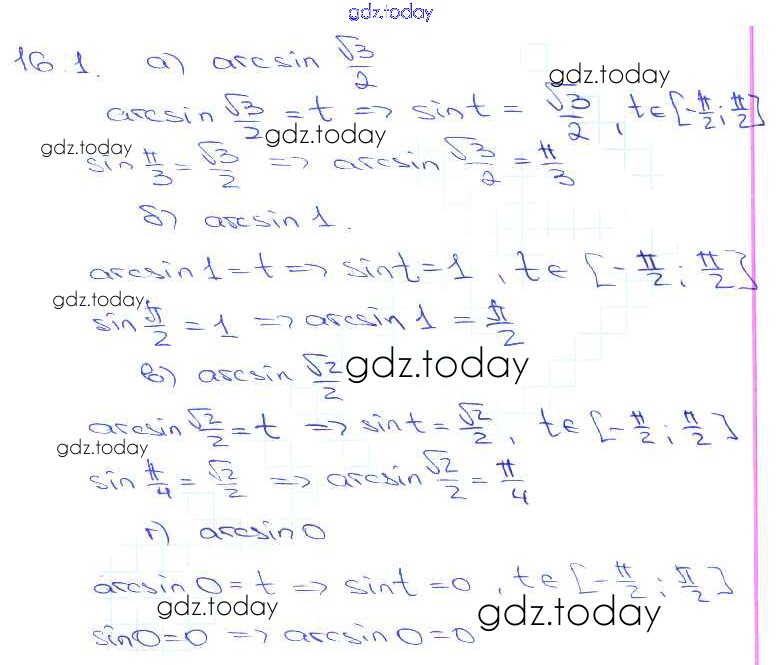 gdz.today
16.1. а) arcsin √3/2
gdz.today
arcsin √3/2 = t => sin t = √3/2, t ∈ [-π/2; π/2]
gdz.today
gdz.today
sin π/3 = √3/2 => arcsin √3/2 = π/3
б) arcsin 1.
arcsin 1 = t => sin t = 1, t ∈ [-π/2; π/2]
gdz.today
sin π/2 = 1 => arcsin 1 = π/2
в) arcsin √2/2
gdz.today
arcsin √2/2 = t => sin t = √2/2, t ∈ [-π/2; π/2]
gdz.today
sin π/4 = √2/2 => arcsin √2/2 = π/4
г) arcsin 0
arcsin 0 = t => sin t = 0, t ∈ [-π/2; π/2]
gdz.today
gdz.today
sin 0 = 0 => arcsin 0 = 0